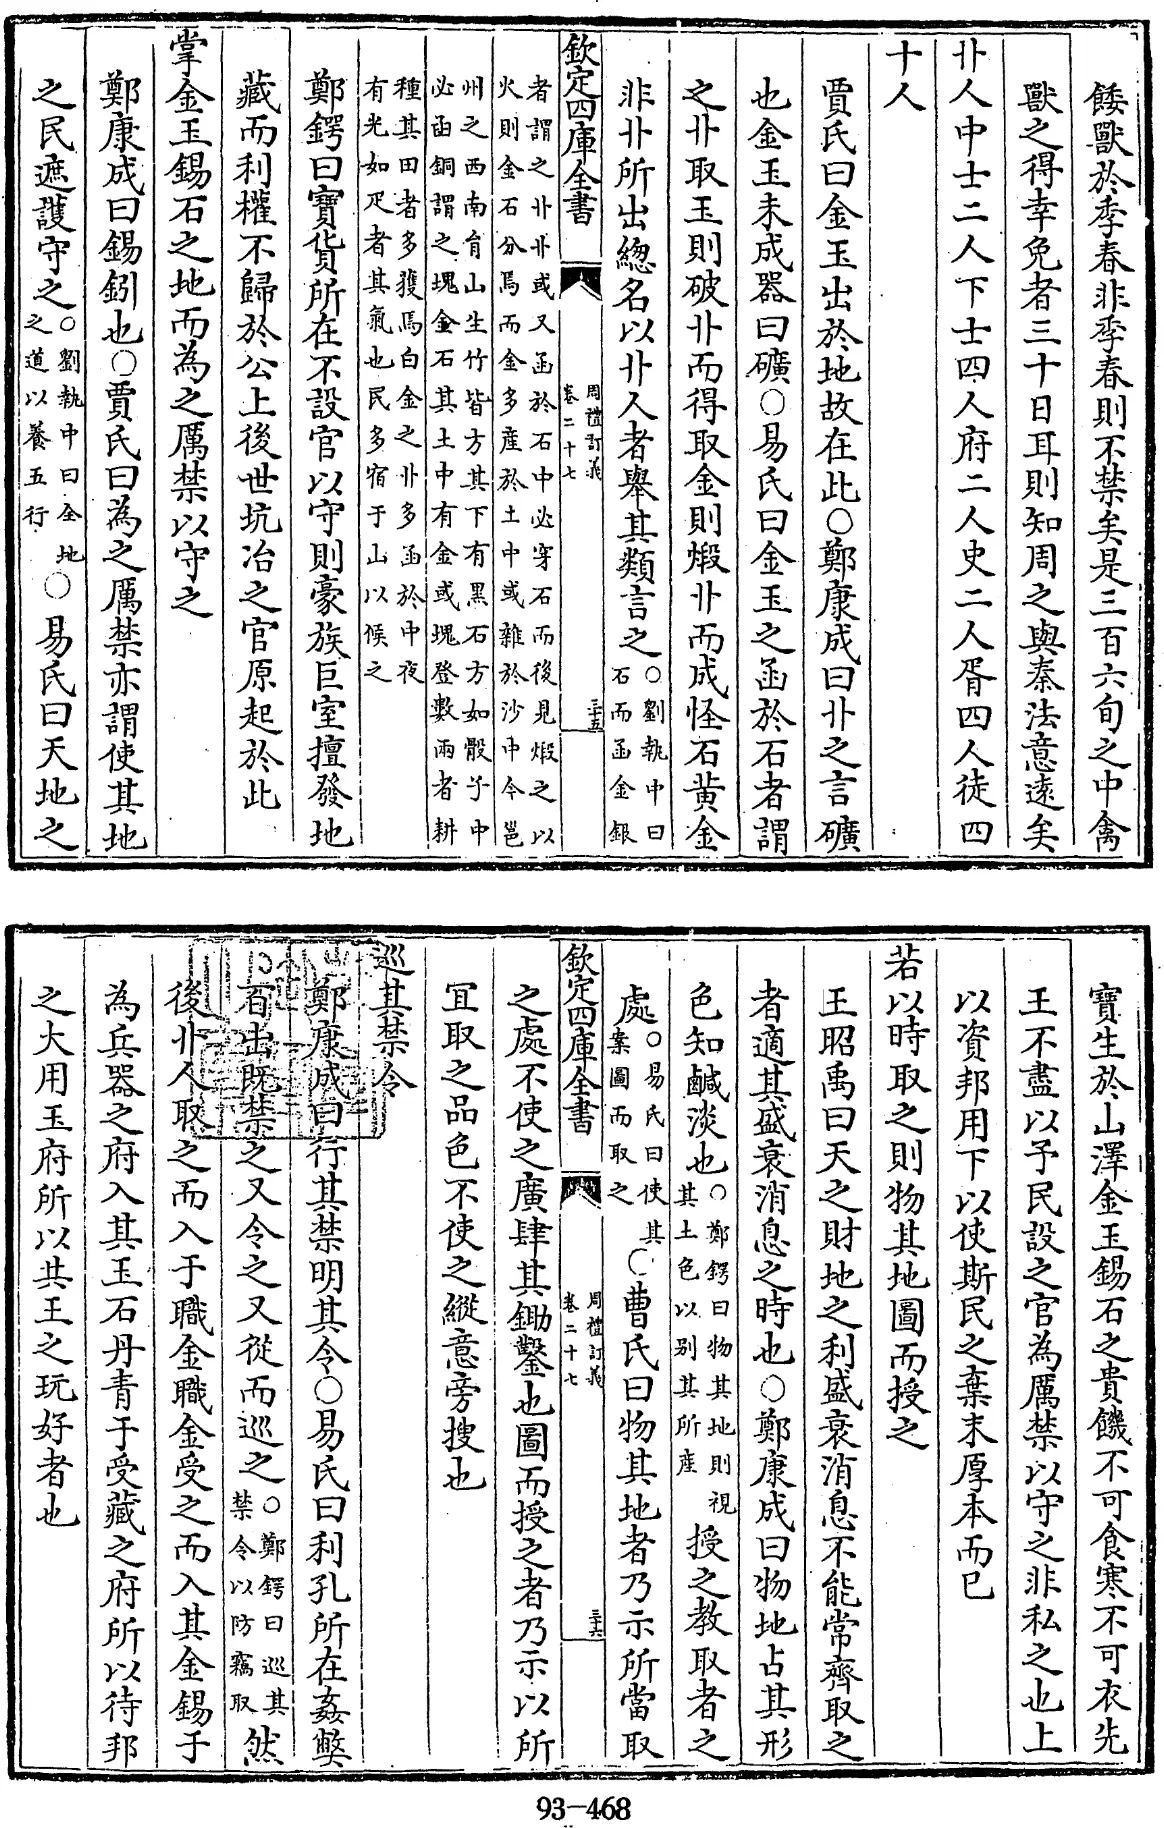 餧獸於季春非季春則不禁矣是三百六旬之中禽
獸之得幸免者三十日耳則知周之與秦法意遠矣
卝人中士二人下士四人府二人史二人胥四人徒四
十人
賈氏曰金玉出於地故在此○鄭康成曰卝之言礦
也金玉未成器曰礦○易氏曰金玉之函於石者謂
之卝取玉則破卝而得取金則煅卝而成怪石黄金
非卝所出緫名以卝人者舉其類言之○劉執中曰
石而函金銀
欽定四庫全書
周禮訂義
卷二十七
三十五
者謂之卝卝或又函於石中必穿石而後見煅之以
火則金石分焉而金多産於土中或雜於沙中今邕
州之西南有山生竹皆方其下有黑石方如骰子中
必函銅謂之塊金石其土中有金或塊登數兩者耕
種其田者多獲焉白金之卝多函於中夜
有光如疋者其氣也民多宿于山以候之
鄭鍔曰寳貨所在不設官以守則豪族巨室擅發地
藏而利權不歸於公上後世坑冶之官原起於此
掌金玉錫石之地而為之厲禁以守之
鄭康成曰錫鈏也○賈氏曰為之厲禁亦謂使其地
之民遮護守之○劉執中曰全地
之道以養五行
○易氏曰天地之
寶生於山澤金玉錫石之貴饑不可食寒不可衣先
王不盡以予民設之官為厲禁以守之非私之也上
以資邦用下以使斯民之棄末厚本而已
若以時取之則物其地圖而授之
王昭禹曰天之財地之利盛衰消息不能常齊取之
者適其盛衰消息之時也○鄭康成曰物地占其形
色知鹹淡也○鄭鍔曰物其地則視
其土色以别其所産
授之教取者之
處○易氏曰使其
案圖而取之
○曹氏曰物其地者乃示所當取
欽定四庫全書
周禮訂義
卷二十七
三十六
之處不使之廣肆其鋤鑿也圖而授之者乃示以所
宜取之品色不使之縱意旁搜也
巡其禁令
鄭康成曰行其禁明其令○易氏曰利孔所在姦弊
百出既禁之又令之又從而巡之○鄭鍔曰巡其
禁令以防竊取
然
後卝人取之而入于職金職金受之而入其金錫于
為兵器之府入其玉石丹青于受藏之府所以待邦
之大用玉府所以共王之玩好者也
93-468